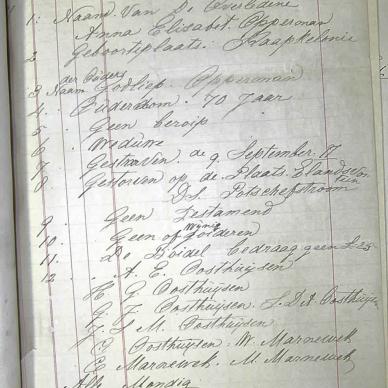 1: Naam Van De Overledene
Anna Elisabet Opperman
2 Geboortplaats. Kaapkolonie
der Ouders
3 Naam Godliep Opperman
4. Ouderdom. 70 Jaar
5 Geen beroip
6 Weduwe
7 Gestorven de 9 September. 17
8 Gestorven op de Plaats. Elandsfon
tein
DS. Potschefstroom
9. Geen Testamend
Wynig
10. Geen of Goideren
11. De Boidel bedraag geen £25
12. A. E. Oosthuysen
H. G. Oosthuysen
G. F. Oosthuysen. J. D. A. Oosthuysen
M. Oosthuysen
C. Oosthuysen. W. Marnewek
E. Marnewek. M. Marnewek
Alle Mondig